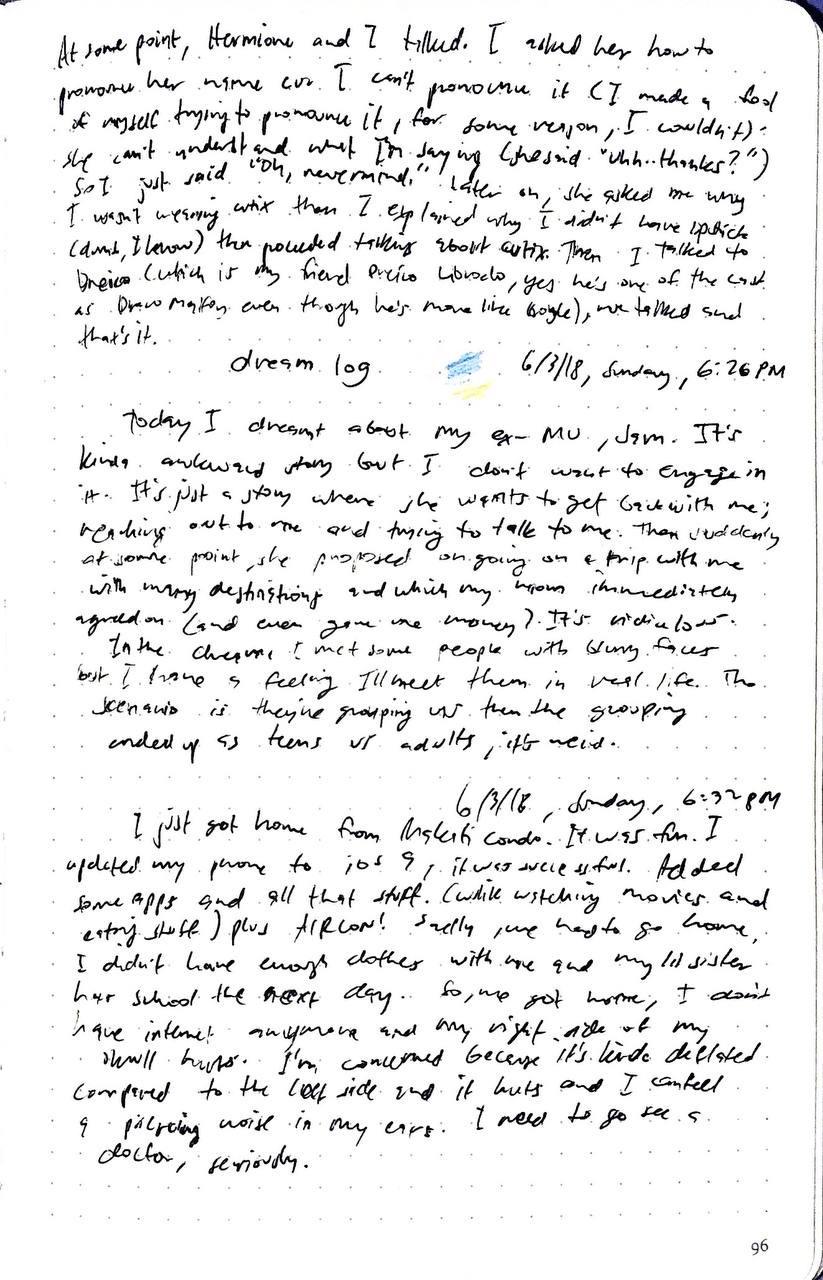 At some point, Hermione and I talked. I asked her how to
pronounce her name cuz I can't pronounce it (I made a fool
of myself trying to pronounce it, for some reason, I couldn't).
she can't understand what I'm saying (she said "Uhh..thanks?")
So I just said "Oh, nevermind." Later on, she asked me why
I wasn't wearing cutix then I explained why I didn't have lipstick
(dumb, I know) then proceeded talking about cutix. Then I talked to
Dreico (which is my friend Dreico Librado, yes he's one of the cast
as Draco Malfoy even though he's more like Goyle), we talked and
that's it.
dream log 6/3/18, Sunday, 6:26 PM
Today I dreamt about my ex-MU, Jam. It's
kinda awkward story but I don't want to engage in
it. It's just a story where she wants to get back with me;
reaching out to me and trying to talk to me. Then suddenly
at some point, she proposed on going on a trip with me
with many destinations and which my mom immediately
agreed on (and even gave me money)? It's ridiculous.
In the dream I met some people with blurry faces
but I have a feeling I'll meet them in real life. The
scenario is they're grouping us then the grouping
ended up as teens vs adults, it's weird.
6/3/18, Sunday, 6:32 PM
I just got home from Makati Condo. It was fun. I
updated my phone to ios 9, it was successful. Added
some apps and all that stuff. (while watching movies and
eating stuff) plus AIRCON! Sadly, we had to go home,
I didn't have enough clothes with me and my lil sister
has school the next day. So, we got home, I don't
have internet anymore and my right side of my
skull hurts. I'm concerned because it's kinda deflated
compared to the left side and it hurts and I can feel
a piercing noise in my ears. I need to go see a
doctor, seriously.
96